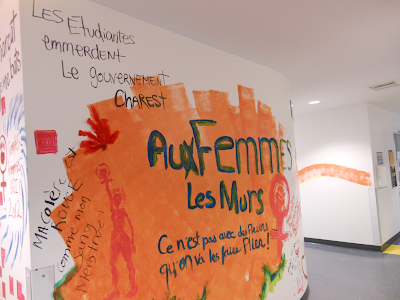 LES Étudiantes
emmerdent
Le gouvernement
CHAREST
Aux Femmes
Les Murs
Ce n'est pas avec des fleurs
qu'on va les faire Plier!
MA colère
ROUGE
comme mon
sang
Menstruel